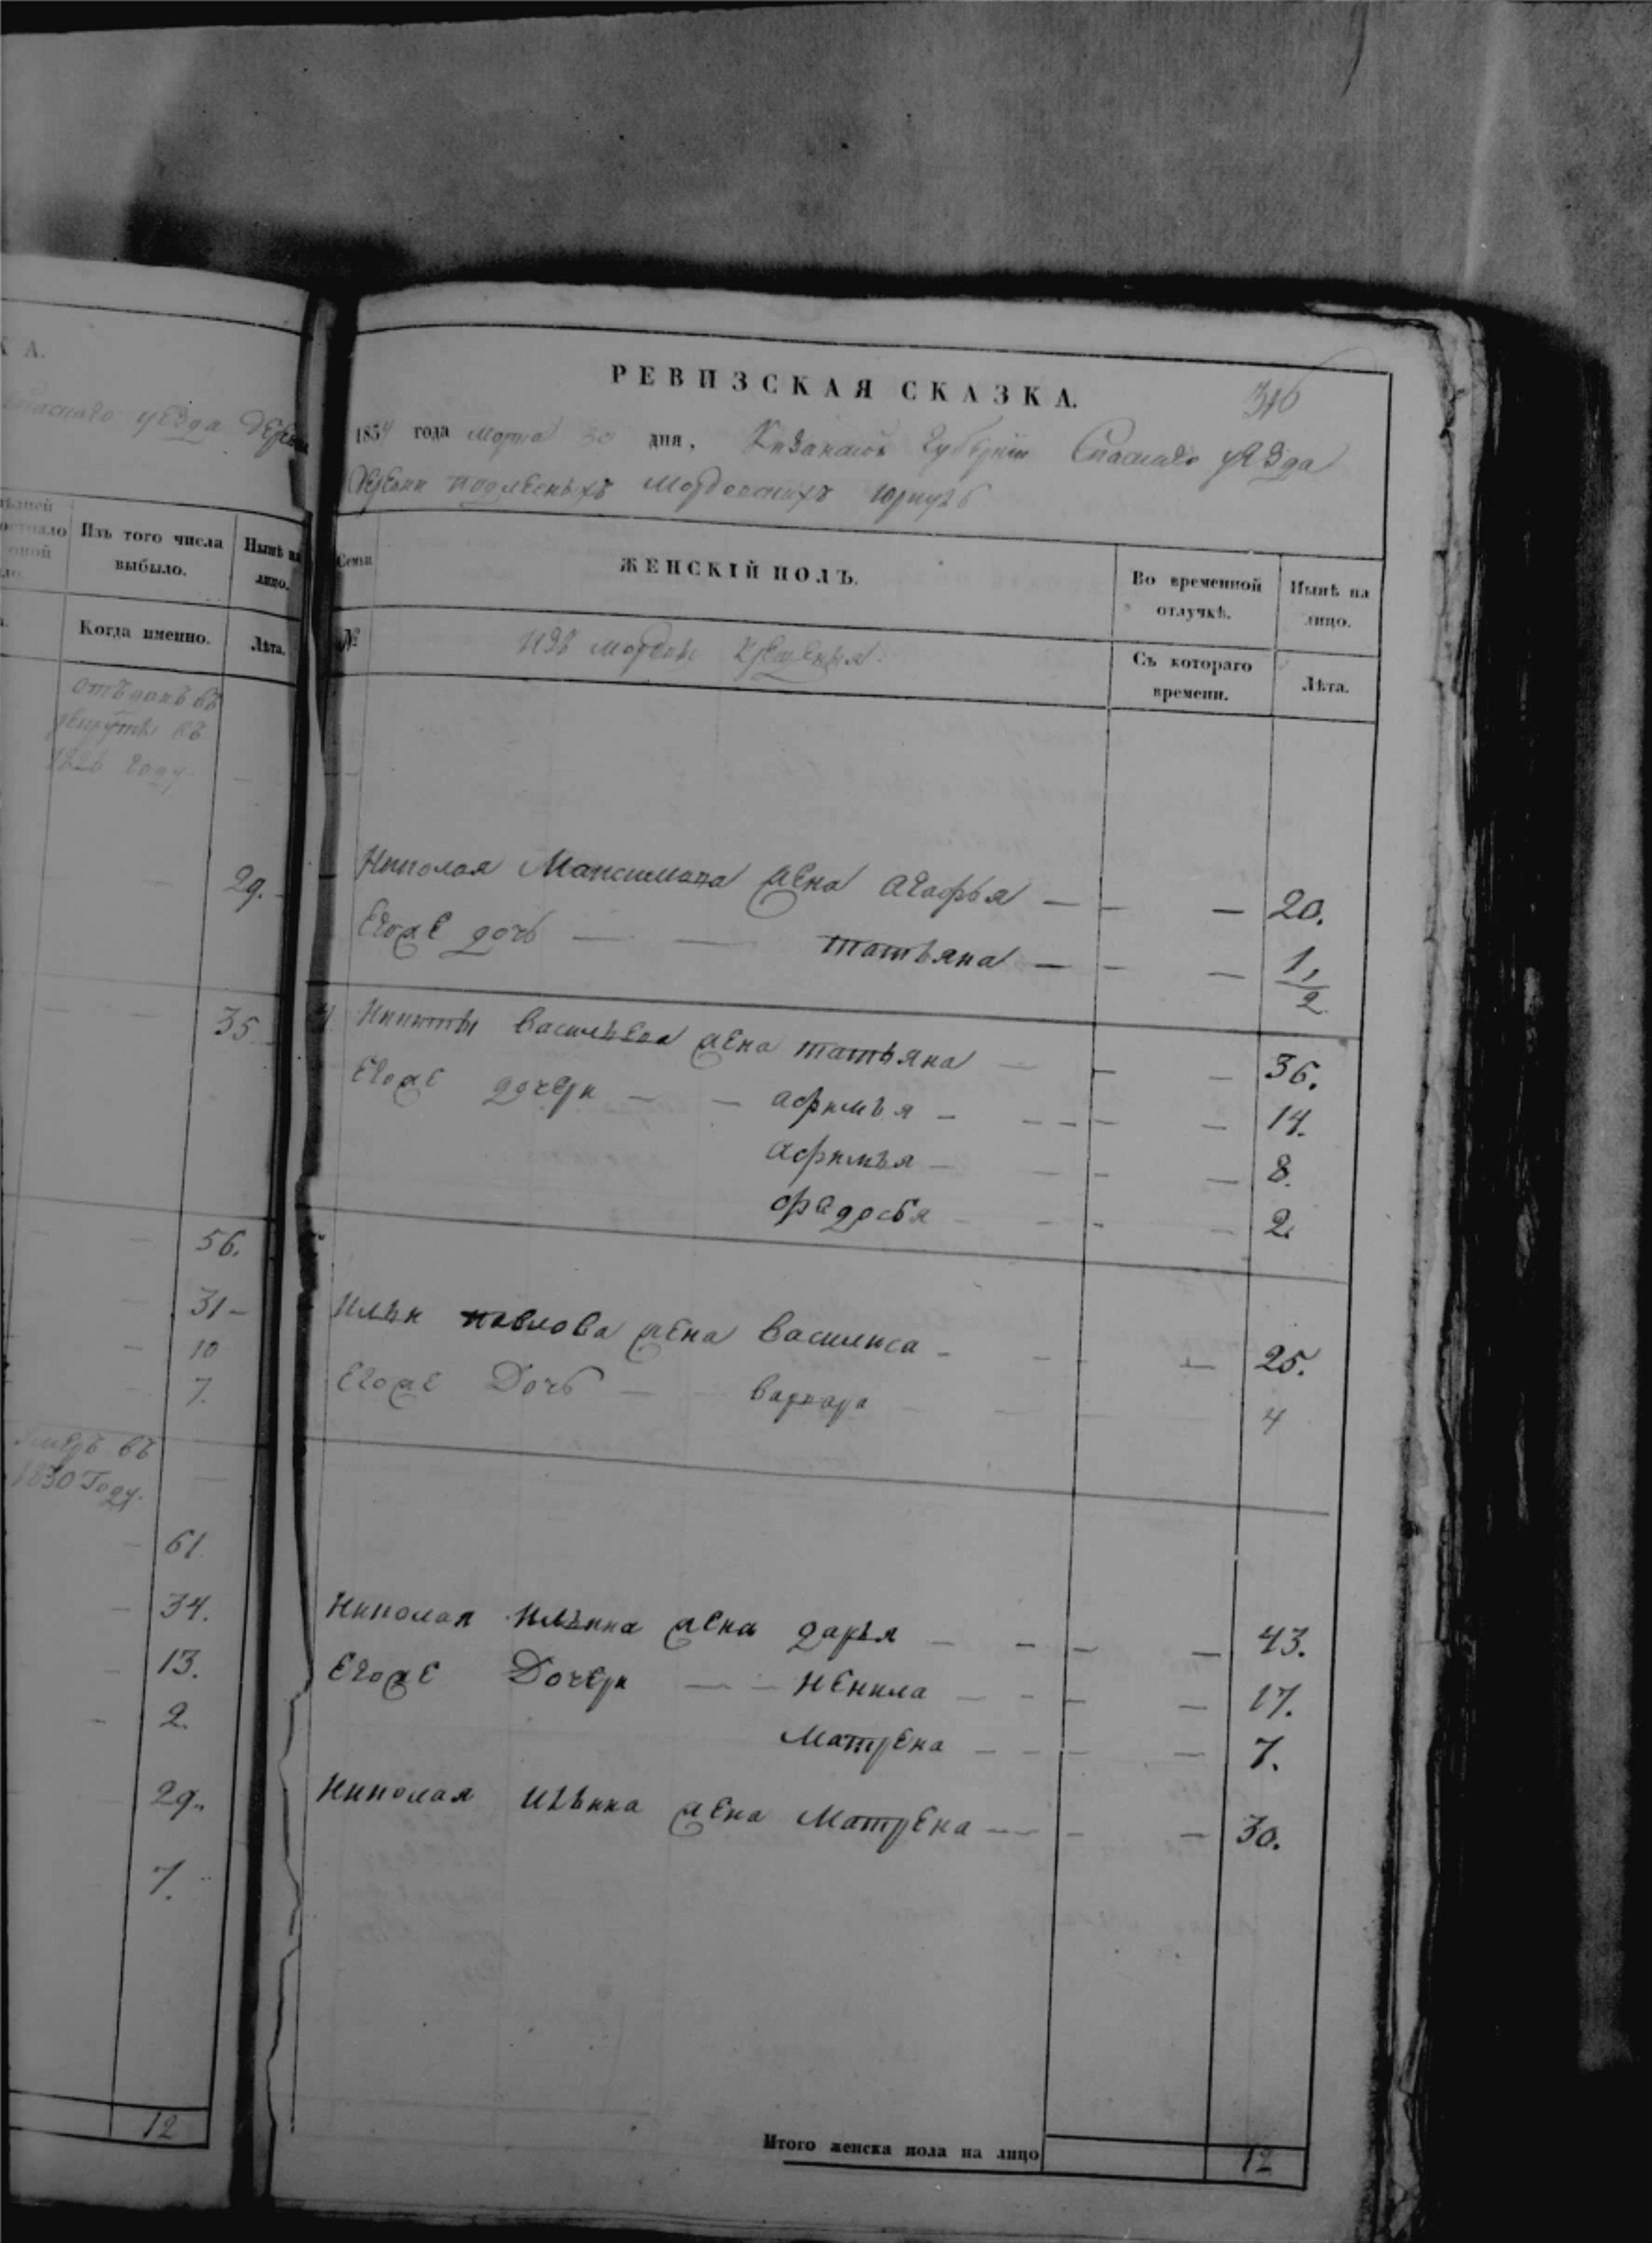 К А.
Спаскаго уезда Дерев
Изъ того числа
выбыло.
Нынѣ на
лицо.
Когда именно.
Лѣта.
отъданъ въ
рекруты въ
1826 Году
29.
35
56.
31
10
7.
Умеръ въ
1830 Году.
61
34.
13.
2.
29.
7.
12
РЕВИЗСКАЯ СКАЗКА.
316
1834 года марта 30 дня, Казанской Губерніи Спаскаго уезда
Деревни Мордовскихъ Юркуль
Семьи
ЖЕНСКІЙ ПОЛЪ.
Во временной
отлучкѣ.
Нынѣ на
лицо.
№
изъ мордвы крещеныя.
Съ котораго
времени.
Лѣта.
Николая Максимова жена агафья — — — 20.
Егоже дочь — — татьяна — — — 1 1/2
4 Никиты васильева жена татьяна — — — 36.
Егоже дочери — — афимья — — — 14.
Афимья — — — 8.
фадосья — — — 2.
Ильи павлова жена василиса — — — 25.
Егоже Дочь — — варвара — — 4
Николая Ильина жена дарья — — — 43.
Егоже Дочери — — Ненила — — — 17.
Матрена — — — 7.
Николая Ильина жена Матрена — — — 30.
Итого женска пола на лицо
12